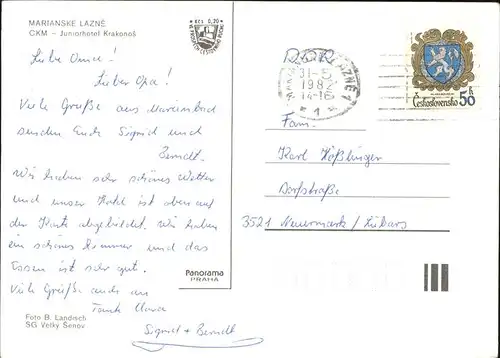 MARIANSKE LAZNĚ
CKM – Juniorhotel Krakonoš
Kčs 0,20
Liebe Oma!
Lieber Opa!
Viele Grüße aus Marienbad
senden Euch Sigrid und
Berndt.
Wir haben sehr schönes Wetter
und unser Hotel ist oben auf
der Karte abgebildet. Wir haben
ein schönes Zimmer und das
Essen ist sehr gut.
Viele Grüße auch an
Tante
Sigrid + Berndt
Foto B. Landisch
SG Velký Šenov
Panorama
PRAHA
DDR
LÁZNĚ 1
31.-5.
1982
14-16
* 1 *
Československo 50 h
Fam.
Karl Häßlinger
Dorfstraße
3521 Neuermark / Lübars